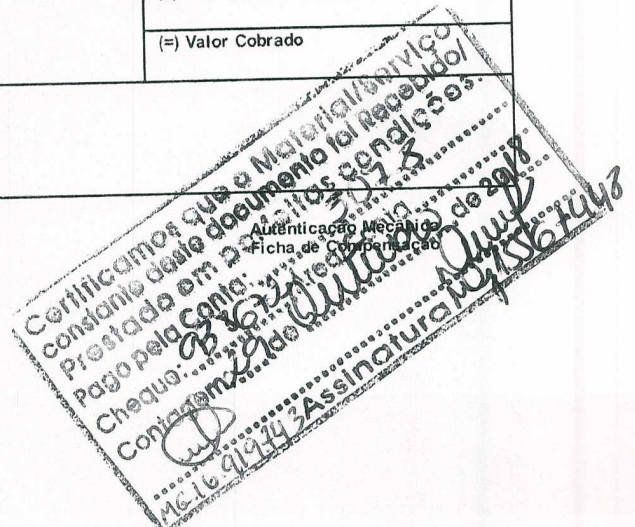 (=) Valor Cobrado
Autenticação Mecânica
Ficha de Compensação
Certificamos que o Material/Serviço
constante deste documento foi Recebido/
Prestado em perfeitas condições.
Pago pela conta: 307-8
Cheque: Agência
Contagem 29 de Outubro de 2018
Assinatura
MG.16.919743